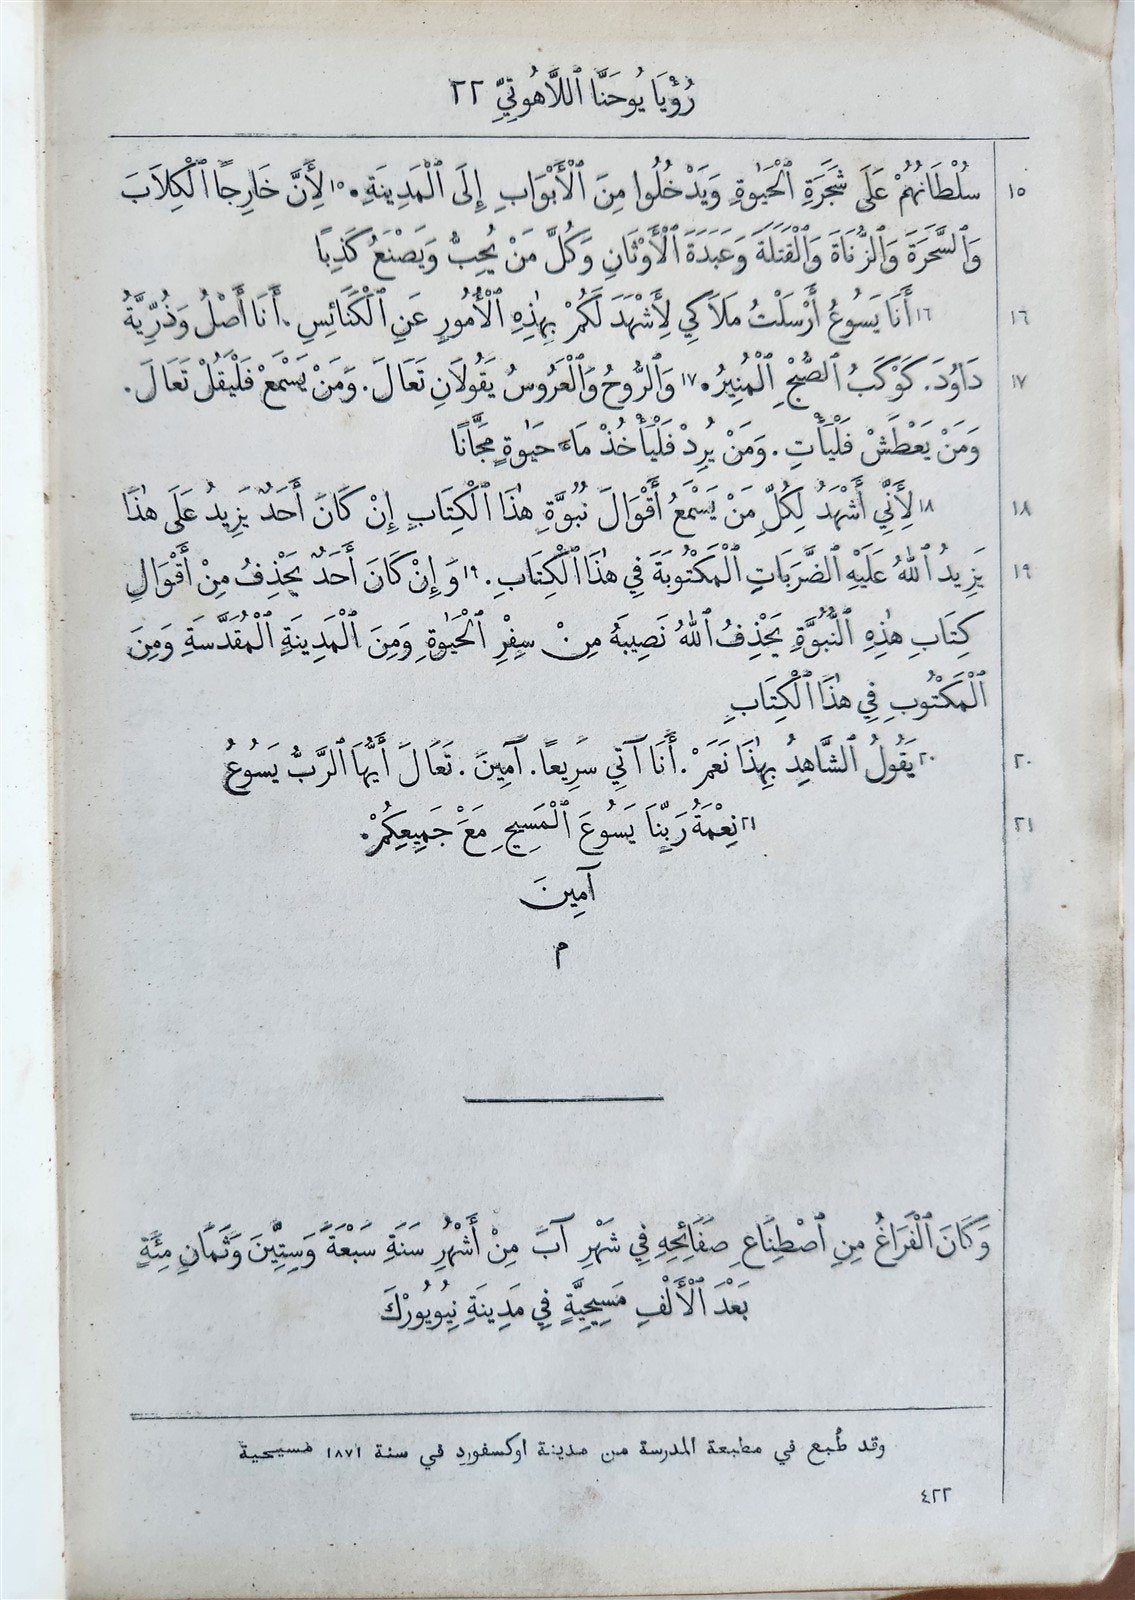 رُؤْيَا يُوحَنَّا ٱللَّاهُوتِيِّ ٢٢
١٥ سُلْطَانُهُمْ عَلَى شَجَرَةِ ٱلْحَيٰوةِ وَيَدْخُلُوا مِنَ ٱلْأَبْوَابِ إِلَى ٱلْمَدِينَةِ. ١٥ لِأَنَّ خَارِجًا ٱلْكِلَابَ
وَٱلسَّحَرَةَ وَٱلزُّنَاةَ وَٱلْقَتَلَةَ وَعَبَدَةَ ٱلْأَوْثَانِ وَكُلَّ مَنْ يُحِبُّ وَيَصْنَعُ كَذِبًا
١٦ ١٦ أَنَا يَسُوعُ أَرْسَلْتُ مَلَاكِي لِأَشْهَدَ لَكُمْ بِهٰذِهِ ٱلْأُمُورِ عَنِ ٱلْكَنَائِسِ. أَنَا أَصْلُ وَذُرِّيَّةُ
١٧ دَاوُدَ. كَوْكَبُ ٱلصُّبْحِ ٱلْمُنِيرُ. ١٧ وَٱلرُّوحُ وَٱلْعَرُوسُ يَقُولَانِ تَعَالَ. وَمَنْ يَسْمَعْ فَلْيَقُلْ تَعَالَ.
وَمَنْ يَعْطَشْ فَلْيَأْتِ. وَمَنْ يُرِدْ فَلْيَأْخُذْ مَاءَ حَيٰوةٍ مَجَّانًا
١٨ ١٨ لِأَنِّي أَشْهَدُ لِكُلِّ مَنْ يَسْمَعُ أَقْوَالَ نُبُوَّةِ هٰذَا ٱلْكِتَابِ إِنْ كَانَ أَحَدٌ يَزِيدُ عَلَى هٰذَا
١٩ يَزِيدُ ٱللهُ عَلَيْهِ ٱلضَّرَبَاتِ ٱلْمَكْتُوبَةَ فِي هٰذَا ٱلْكِتَابِ. ١٩ وَإِنْ كَانَ أَحَدٌ يَحْذِفُ مِنْ أَقْوَالِ
كِتَابِ هٰذِهِ ٱلنُّبُوَّةِ يَحْذِفُ ٱللهُ نَصِيبَهُ مِنْ سِفْرِ ٱلْحَيٰوةِ وَمِنَ ٱلْمَدِينَةِ ٱلْمُقَدَّسَةِ وَمِنَ
ٱلْمَكْتُوبِ فِي هٰذَا ٱلْكِتَابِ
٢٠ ٢٠ يَقُولُ ٱلشَّاهِدُ بِهٰذَا نَعَمْ. أَنَا آتِي سَرِيعًا. آمِينَ. تَعَالَ أَيُّهَا ٱلرَّبُّ يَسُوعُ
٢١ ٢١ نِعْمَةُ رَبِّنَا يَسُوعَ ٱلْمَسِيحِ مَعَ جَمِيعِكُمْ.
آمِينَ
م
وَكَانَ ٱلْفَرَاغُ مِنِ ٱصْطِنَاعِ صَفَائِحِهِ فِي شَهْرِ آبَ مِنْ أَشْهُرِ سَنَةِ سَبْعَةٍ وَسِتِّينَ وَثَمَانِ مِئَةٍ
بَعْدَ ٱلْأَلْفِ مَسِيحِيَّةٍ فِي مَدِينَةِ نِيُويُورْكَ
وقد طُبع في مطبعة المدرسة من مدينة اوكسفورد في سنة ١٨٧١ مسيحية
٤٢٢